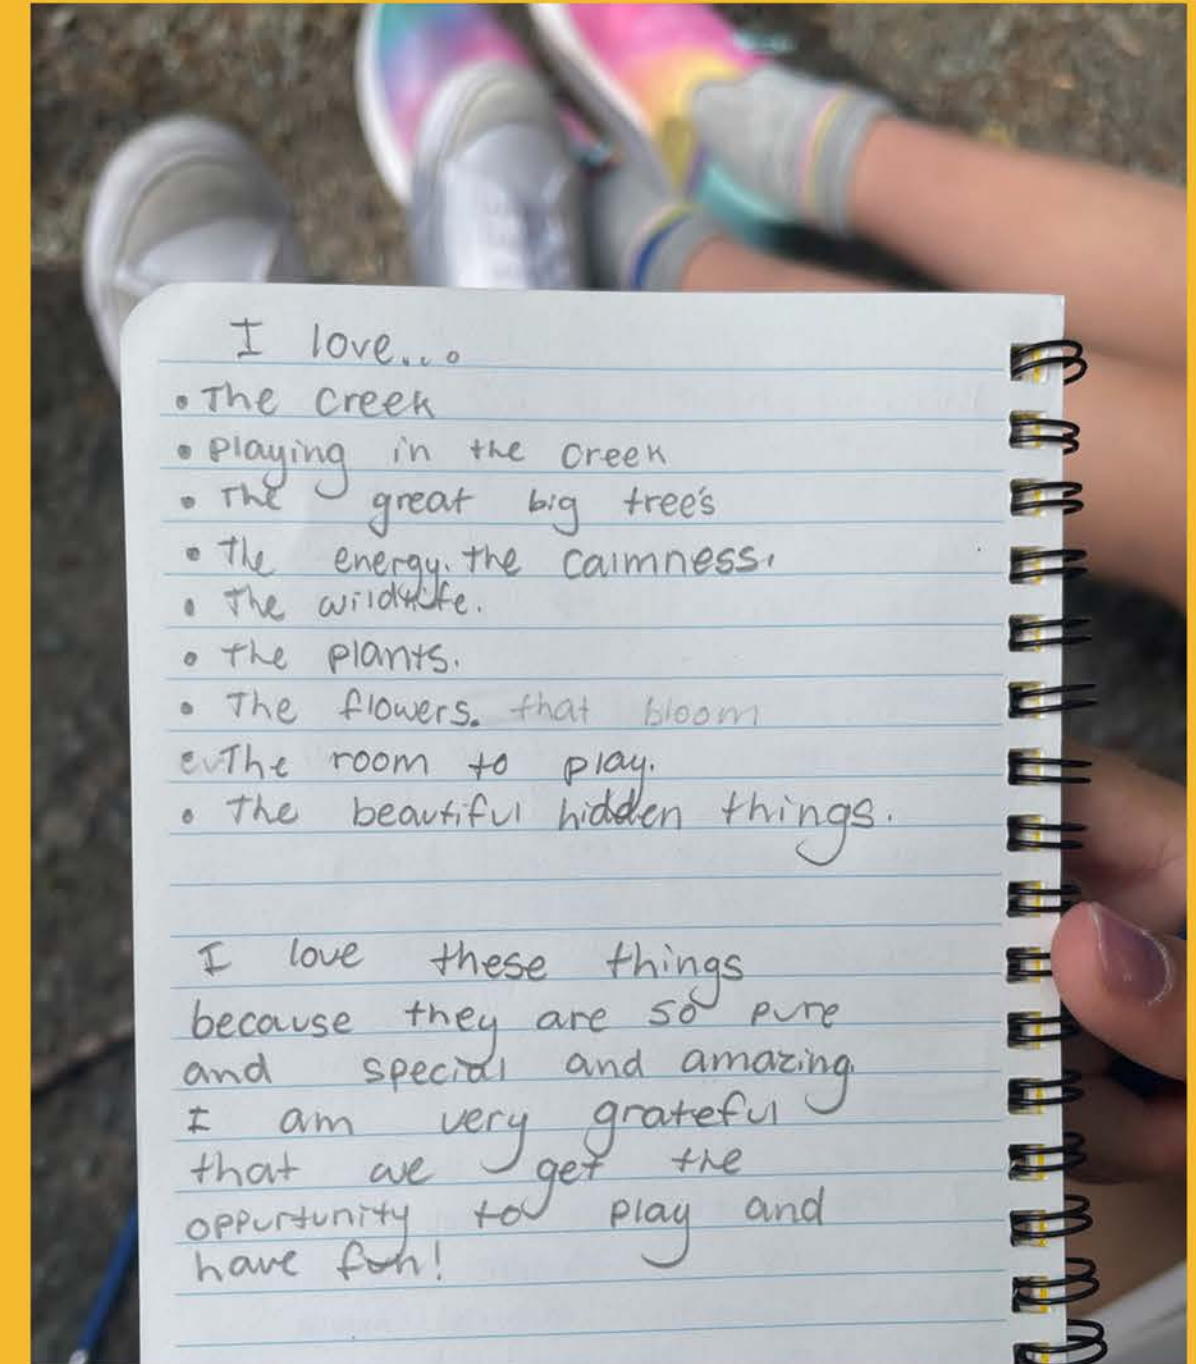 I love...
• The creek
• playing in the creek
• The great big tree's
• The energy. the calmness.
• The wildlife.
• the plants.
• The flowers. that bloom
The room to play.
• The beautiful hidden things.
I love these things
because they are so pure
and special and amazing.
I am very grateful
that we get the
oppurtunity to play and
have fun!